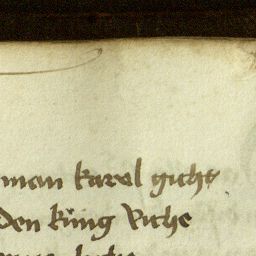 man karol gicht
den küng Riche